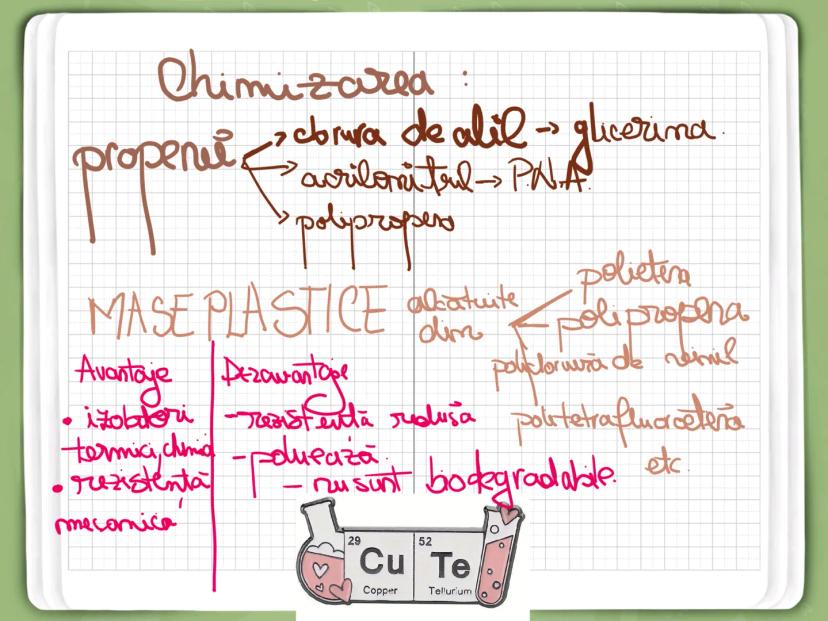 Chimizarea :
propenii
→ clorura de alil → glicerina
→ acrilonitril → P.N.A.
→ polipropena
MASE PLASTICE alcatuite din
polietena
polipropena
policlorură de vinil
politetrafluoroetenă
etc
Avantaje
• izolatori
termici, chimici
• rezistentă
mecanică
Dezavantaje
- rezistentă redusă
- poluează
- nu sunt biodegradabile.
29
Cu
Copper
52
Te
Tellurium